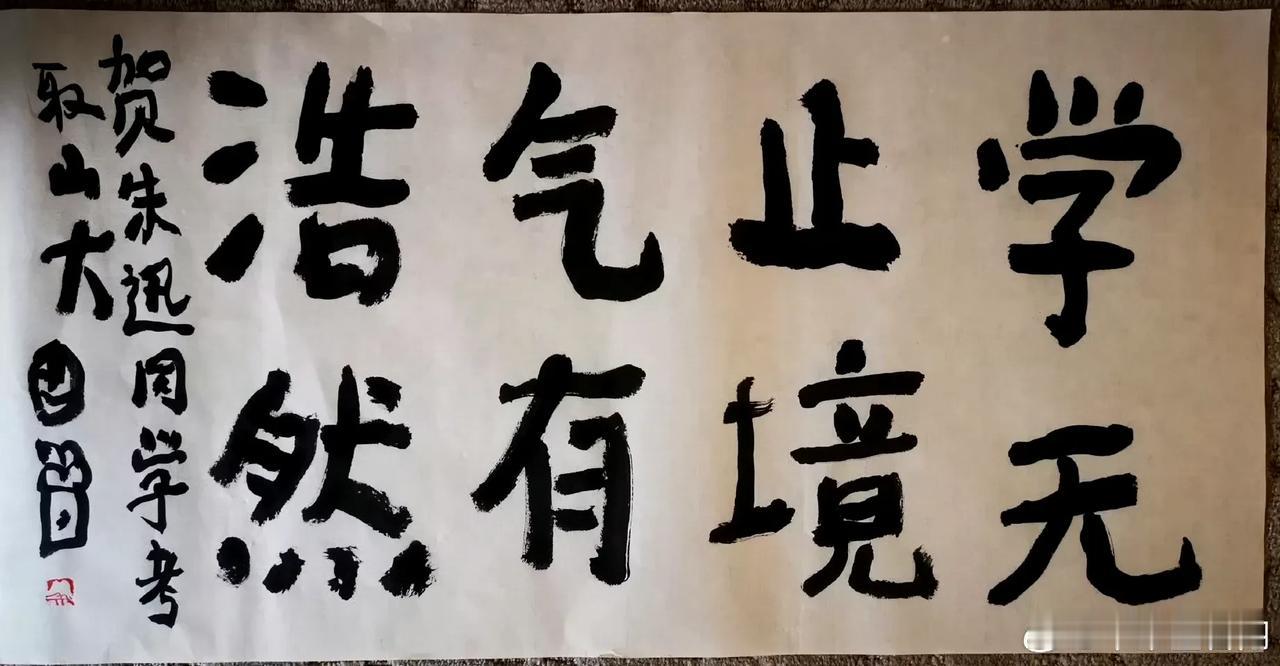 学无
止境
气有
浩然
贺朱迅同学考
取山大